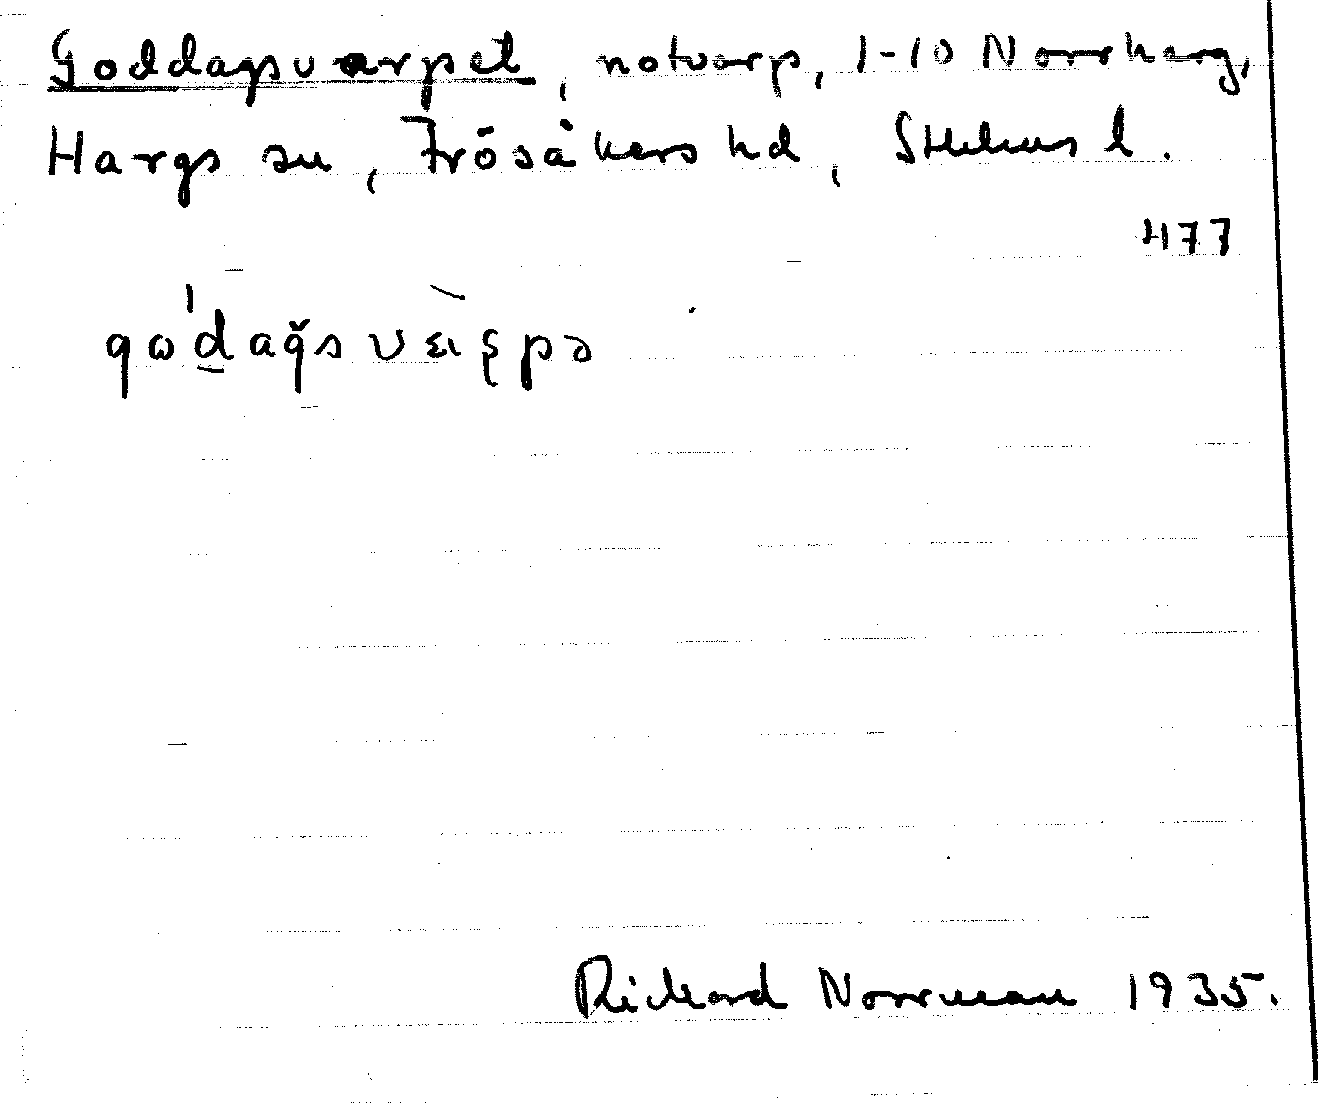 Goddagsvarpet, notvarp, 1-10 Norrharg,
Hargs sn, Frösåkers hd, Sthlms l.
477
Rickard Norrman 1935.